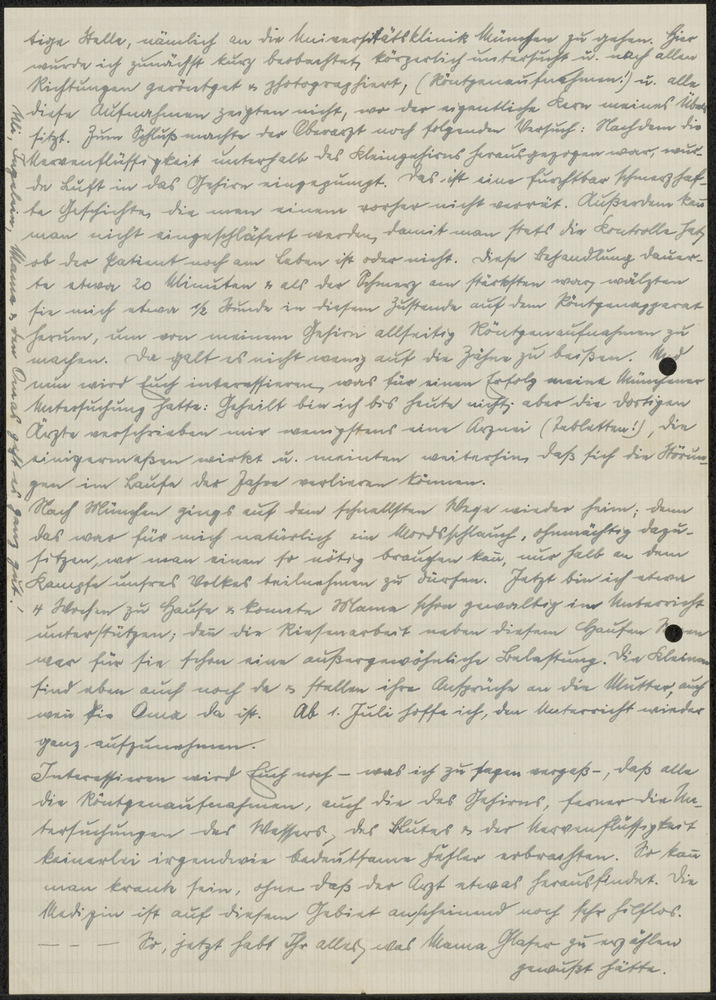 tige Stelle, nämlich an die Universitätsklinik München zu gehen. Hier
wurde ich zunächst kurz beobachtet, körperlich untersucht u. nach allen
Richtungen geröntget & photographiert, (Röntgenaufnahmen!) u. alle
diese Aufnahmen zeigten nicht, wo der eigentliche Kern meines Übels
sitzt. Zum Schluß machte der Oberarzt noch folgenden Versuch: Nachdem die
Nervenflüssigkeit unterhalb des Kleingehirns herausgezogen war, wur-
de Luft in das Gehirn eingepumpt. Das ist eine furchtbar schmerzhaf-
te Geschichte, die man einem vorher nicht verrät. Außerdem kan̄
man nicht eingeschläfert werden, damit man stets die Kontrolle hat,
ob der Patient noch am Leben ist oder nicht. Diese Behandlung dauer-
te etwa 20 Minuten & als der Schmerz am stärksten war, wälzten
sie mich etwa ½ Stunde in diesem Zustande auf dem Röntgenapparat
herum, um von meinem Gehirn allseitig Röntgenaufnahmen zu
machen. Da galt es nicht wenig auf die Zähne zu beißen. Und
nun wird Euch interessieren, was für einen Erfolg meine Münchener
Untersuchung hatte: Geheilt bin ich bis heute nicht; aber die dortigen
Ärzte verschrieben mir wenigstens eine Arznei (Tabletten!), die
einigermaßen wirkt u. meinten weiterhin, daß sich die Störun-
gen im Laufe der Jahre verlieren können.
Nach München gings auf dem schnellsten Wege wieder heim; denn
das war für mich natürlich ein Mordsschlauch, ohnmächtig dazu-
sitzen, wo man einen so nötig brauchen kan̄, nur halb an dem
Kampfe unsres Volkes teilnehmen zu dürfen. Jetzt bin ich etwa
4 Wochen zu Hause & konnte Mama schon gewaltig im Unterricht
unterstützen; den̄ die Riesenarbeit neben diesem Haufen
war für sie schon eine außergewöhnliche Belastung. Die Kleinen
sind eben auch noch da & stellen ihre Ansprüche an die Mutter, auch
wen̄ die Oma da ist. Ab 1. Juli hoffe ich, den Unterricht wieder
ganz aufzunehmen.
Interessieren wird Euch noch – was ich zu sagen vergaß –, daß alle
die Röntgenaufnahmen, auch die des Gehirns, ferner die Un-
tersuchungen des Wassers, des Blutes & der Nervenflüssigkeit
keinerlei irgendwie bedeutsame Fehler erbrachten. So kan̄
man krank sein, ohne daß der Arzt etwas herausfindet. Die
Medizin ist auf diesem Gebiet anscheinend noch sehr hilflos.
— — — So, jetzt habt Ihr alles, was Mama Glaser zu erzählen
gewußt hätte.
Mama & den Omas geht es ganz gut!